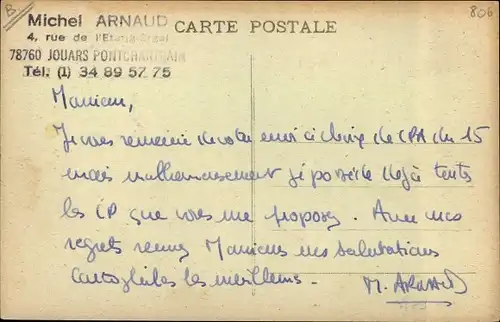 B
806
Michel ARNAUD
CARTE POSTALE
4, rue de l'Etang
78760 JOUARS PONTCHARTRAIN
Tél. (1) 34 89 57 75
Monsieur,
Je vous remercie de votre envoi de CPA du 15
mais malheureusement je possède déjà toutes
les CP que vous me proposez. Avec mes
regrets recevez Monsieur mes salutations
cartophiles les meilleures.
M. ARNAUD